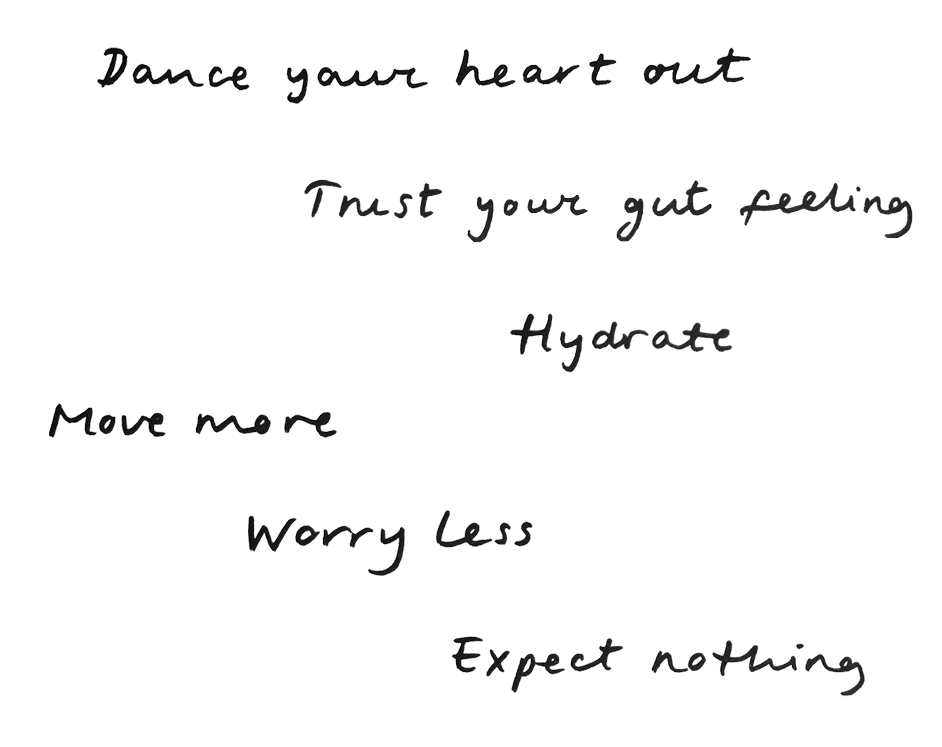 Dance your heart out
Trust your gut feeling
Hydrate
Move more
Worry Less
Expect nothing